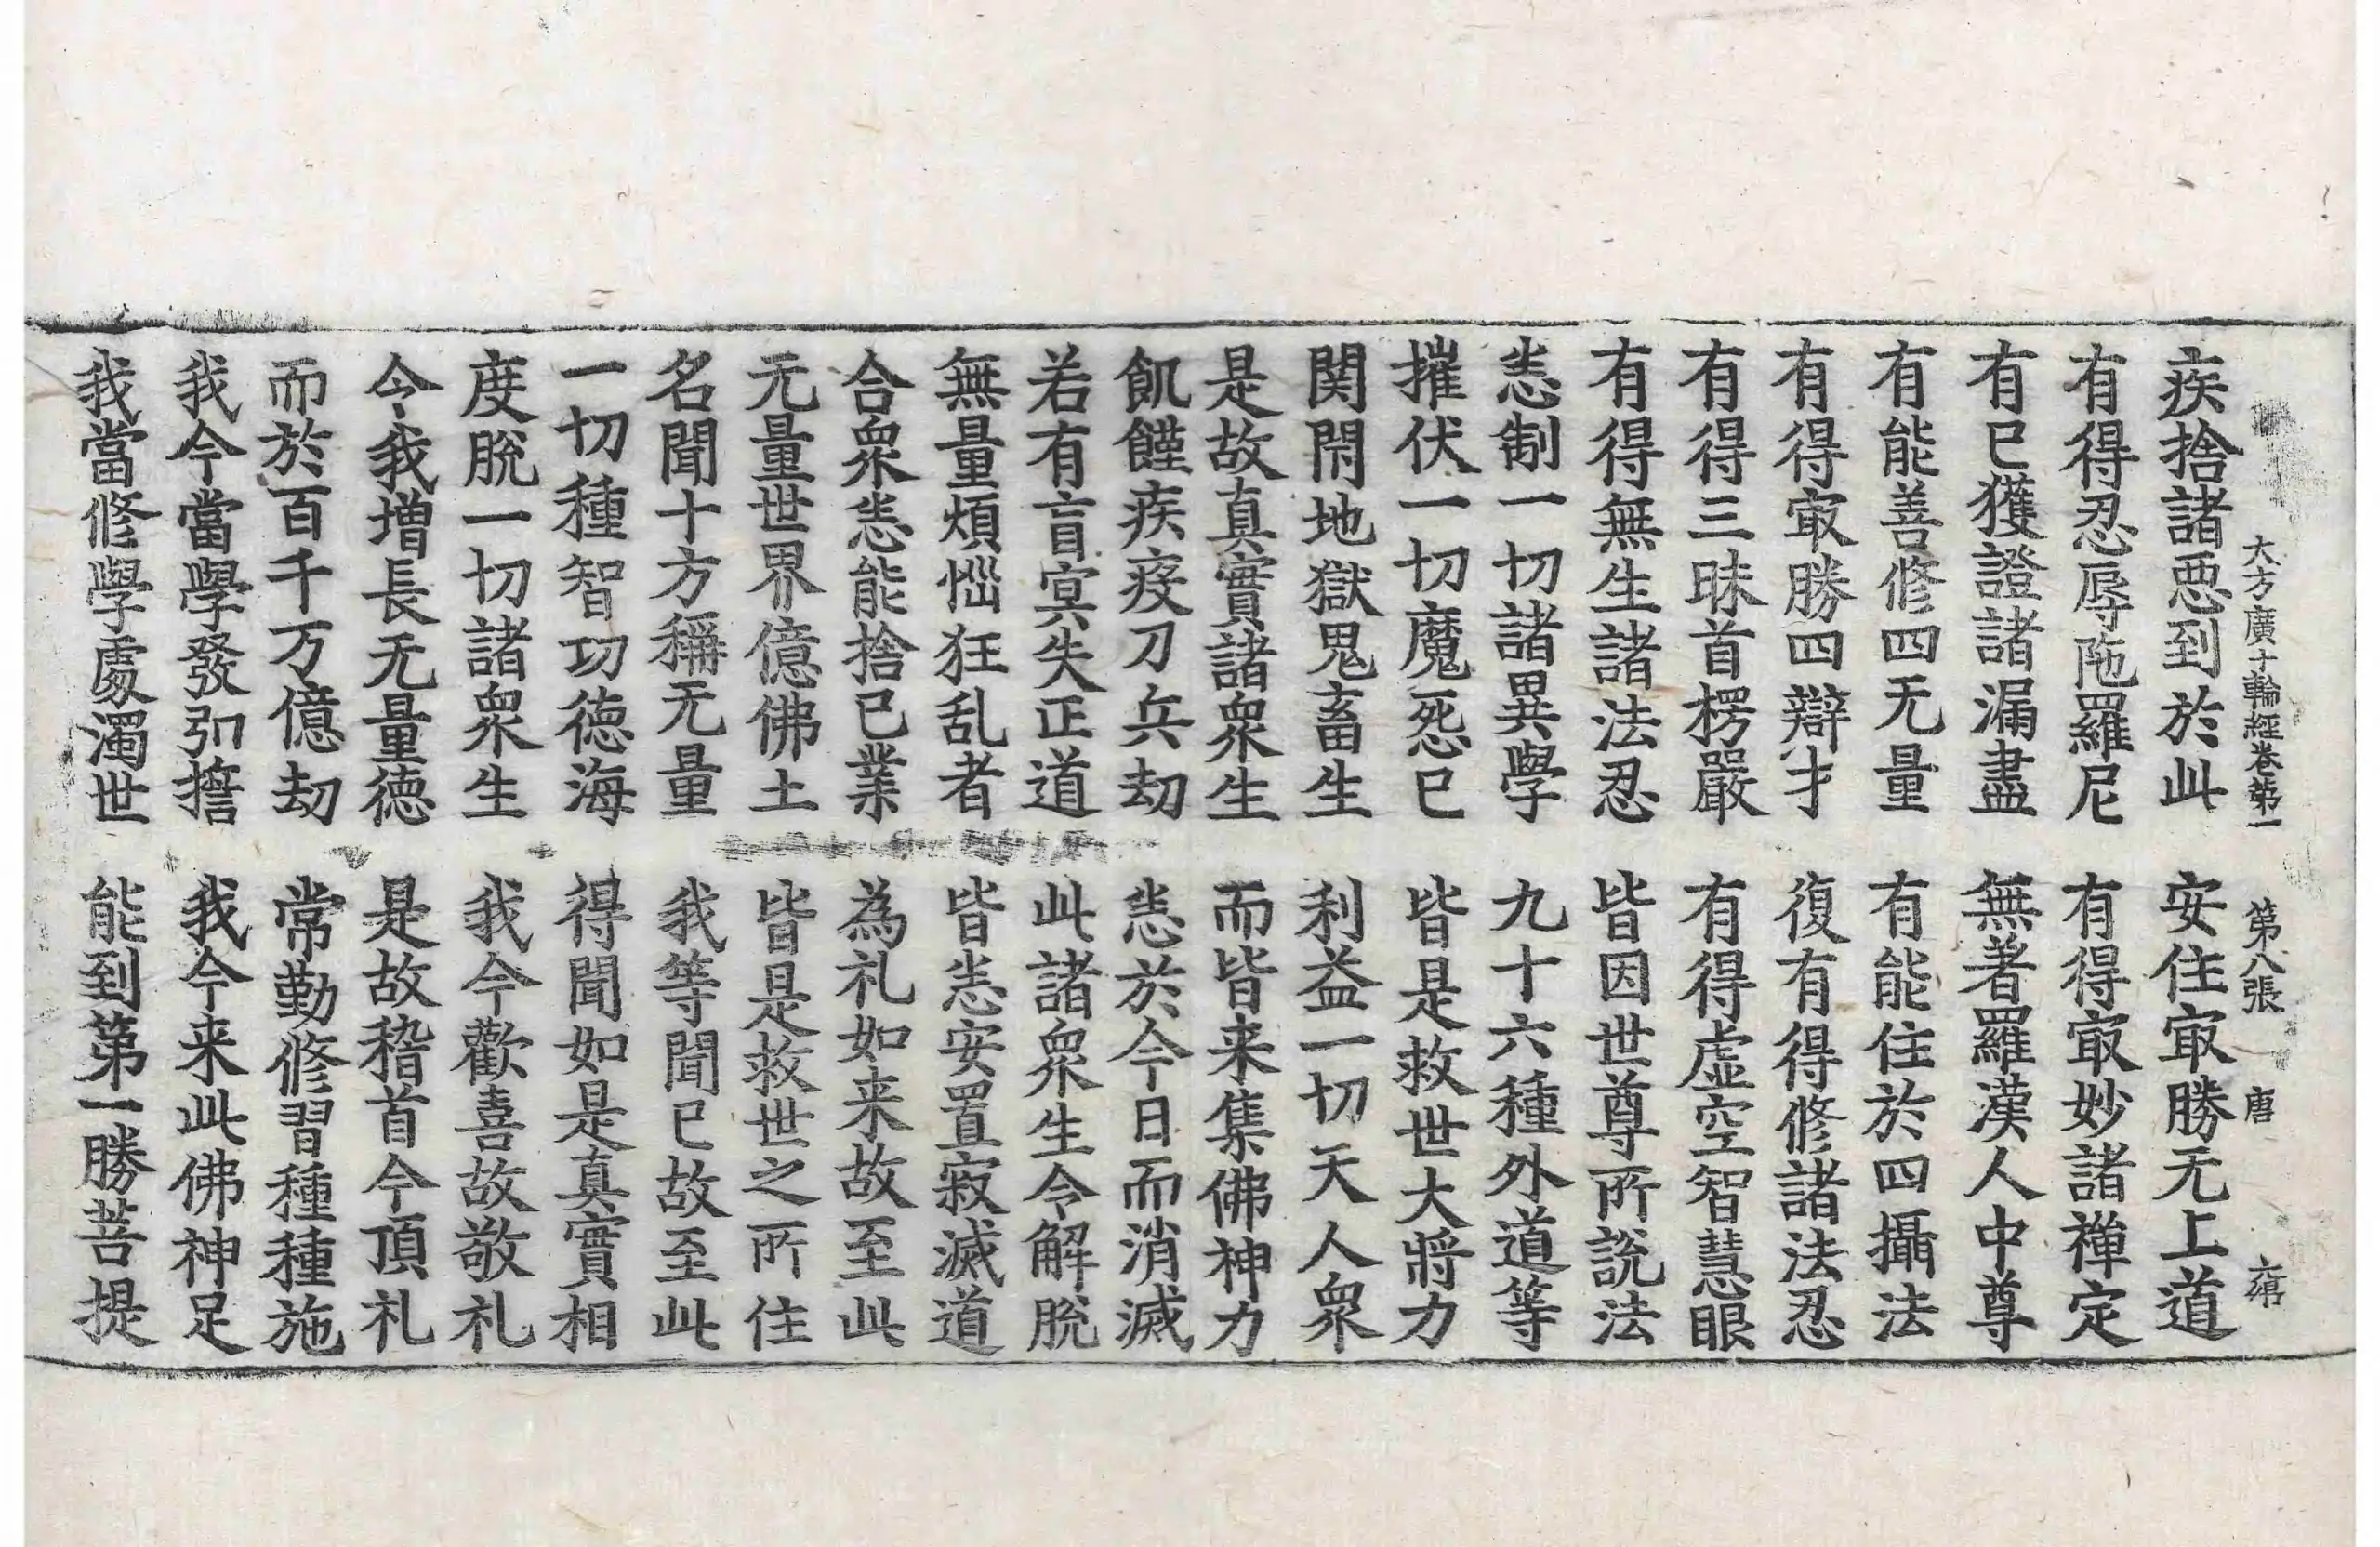 大方廣十輪經卷第一 第八張 唐
疾捨諸惡到於此 安住㝡勝无上道
有得忍辱陁羅尼 有得㝡妙諸禪定
有已獲證諸漏盡 無著羅漢人中尊
有能善修四无量 有能住於四攝法
有得㝡勝四辯才 復有得修諸法忍
有得三昧首楞嚴 有得虛空智慧眼
有得無生諸法忍 皆因世尊所說法
悉制一切諸異學 九十六種外道等
摧伏一切魔惡已 皆是救世大將力
関閇地獄鬼畜生 利益一切天人衆
是故真實諸衆生 而皆来集佛神力
飢饉疾疫刀兵劫 悉於今日而消滅
若有盲冥失正道 此諸衆生令解脫
無量煩惱狂乱者 皆悉安置寂滅道
合衆悉能捨已業 為礼如来故至此
无量世界億佛土 皆是救世之所住
名聞十方稱无量 我等聞已故至此
一切種智功德海 得聞如是真實相
度脫一切諸衆生 我今歡喜故敬礼
今我增長无量德 是故稽首今頂礼
而於百千万億劫 常勤修習種種施
我今當學發弘擔 我今来此佛神足
我當修學處濁世 能到第一勝菩提